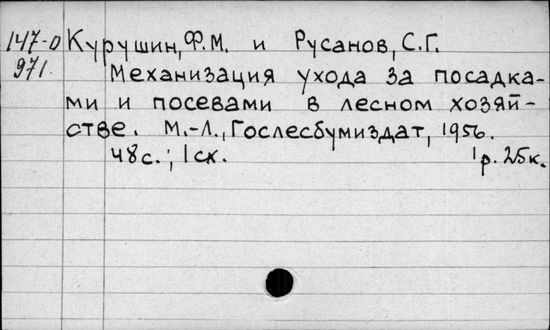 147-0 Курушин, Ф.М. и Русанов, С.Г.
971. Механизация ухода за посадка-
ми и посевами в лесном хозяй-
стве. М.-Л., Гослесбумиздат, 1956.
48с.; 1 сх. 1р. 25к.